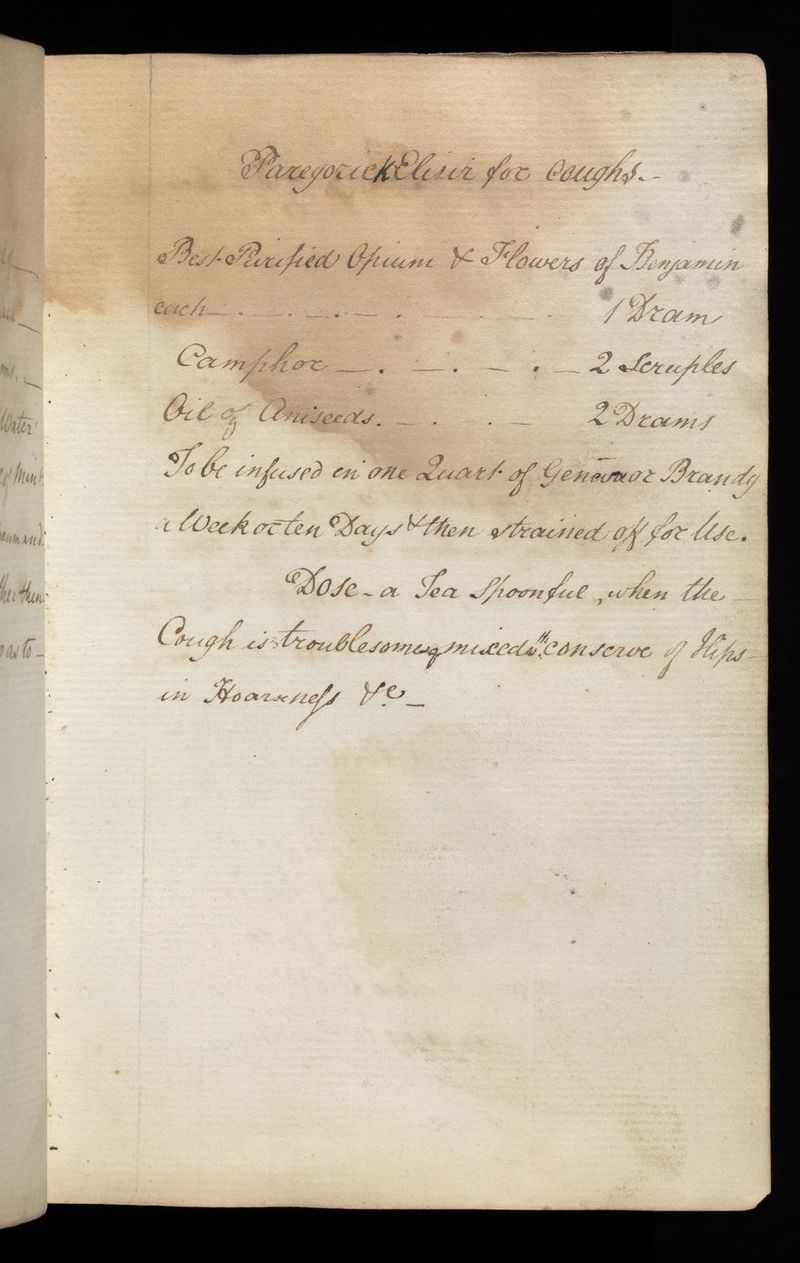 Paregorick Elixir for Coughs.-
Best Purified Opium & Flowers of Benjamin
each - . - . - . 1 Dram
Camphor - . - . - . - 2 Scruples
Oil of Aniseeds. - . . - 2 Drams
To be infused in one Quart of Geneva or Brandy
a Week or ten Days & then strained off for Use.
Dose - a Tea Spoonful, when the
Cough is troublesome, mixed wth. conserve of Hips -
in Hoarseness &c -
Water
of Mint